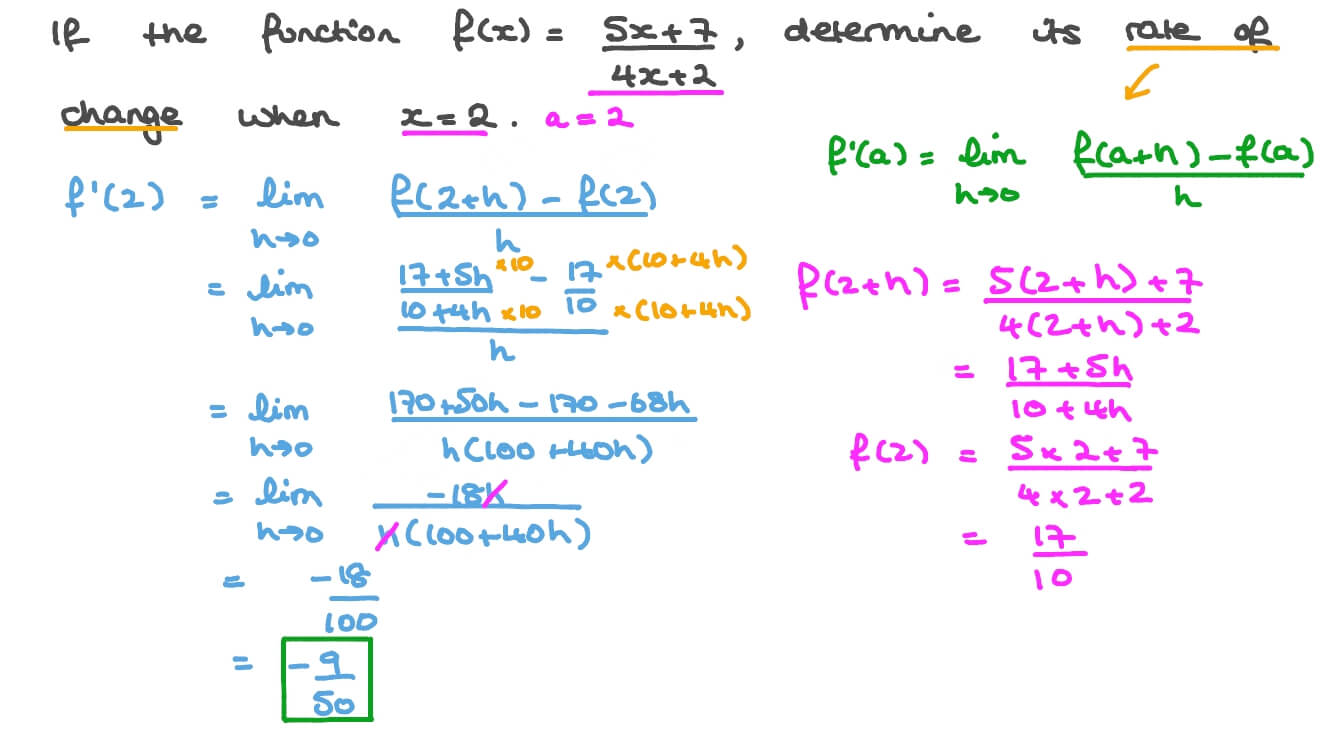 If the function f(x) = (5x+7)/(4x+2), determine its rate of
change when x=2. a=2
f'(a) = lim h→0 (f(a+h)-f(a))/h
f'(2) = lim h→0 (f(2+h) - f(2))/h
= lim h→0 ((17+5h)×10/(10+4h)×10 - 17×(10+4h)/10×(10+4h))/h
= lim h→0 (170+50h-170-68h)/(h(100+40h))
= lim h→0 (-18h)/(h(100+40h))
= -18/100
= -9/50
f(2+h) = (5(2+h)+7)/(4(2+h)+2)
= (17+5h)/(10+4h)
f(2) = (5×2+7)/(4×2+2)
= 17/10